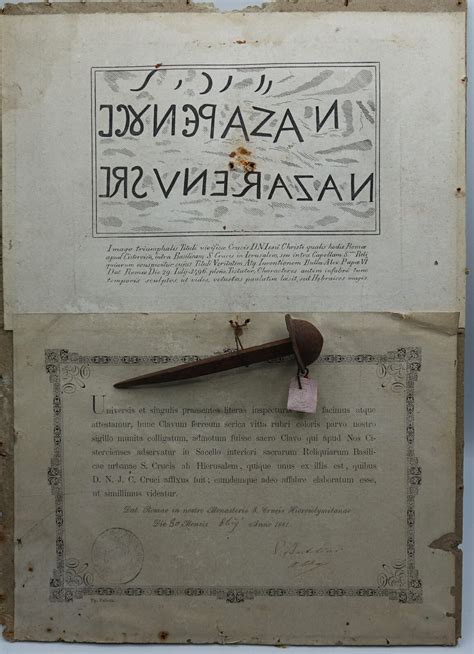 NAZARENVS
Imago triumphalis Tituli vivificæ Crucis D.N.Iesu Christi qualis hodie Romæ
apud Cistercien, intra Basilicam S. Crucis in Ierusalem, seu intra Capellam S. Reli
quiarum asservatur cujus Tituli Veritatem Atq Inventionem Bulla Alex Papæ VI
Dat Romæ Die 29 Iulij 1496 plene Testatur, Characteres autem infabre tunc
temporis sculptos, ut vides, vetustas paulatim læsit, sed Hebraicos magis.
Universis et singulis præsentes literas inspecturis facimus atque
attestamur, hunc Clavum ferreum serica vitta rubri coloris parvo nostro
sigillo munita colligatum, admotum fuisse sacro Clavo qui apud Nos Ci-
stercienses adservatur in Sacello interiori sacrarum Reliquiarum Basili-
cae urbanae S. Crucis ab Hierusalem, quique unus ex illis est, quibus
D. N. J. C. Cruci affixus fuit; eumdemque adeo affabre elaboratum esse,
ut simillimus videatur.
Dat. Romae in nostro Monasterio S. Crucis Hierosolymitanae
Die 30 Mensis Anno 1881.